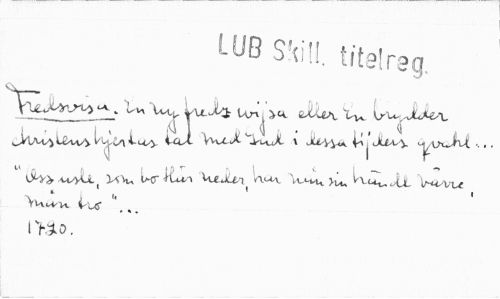 LUB Skill. titelreg.
Fredsvisa. En ny fredz wijsa eller En brydder
christens hjertas tal med Gud i dessa tijders qvahl...
"Osz usle, som bo här neder, har nånsin händt värre,
mån tro"...
1720.